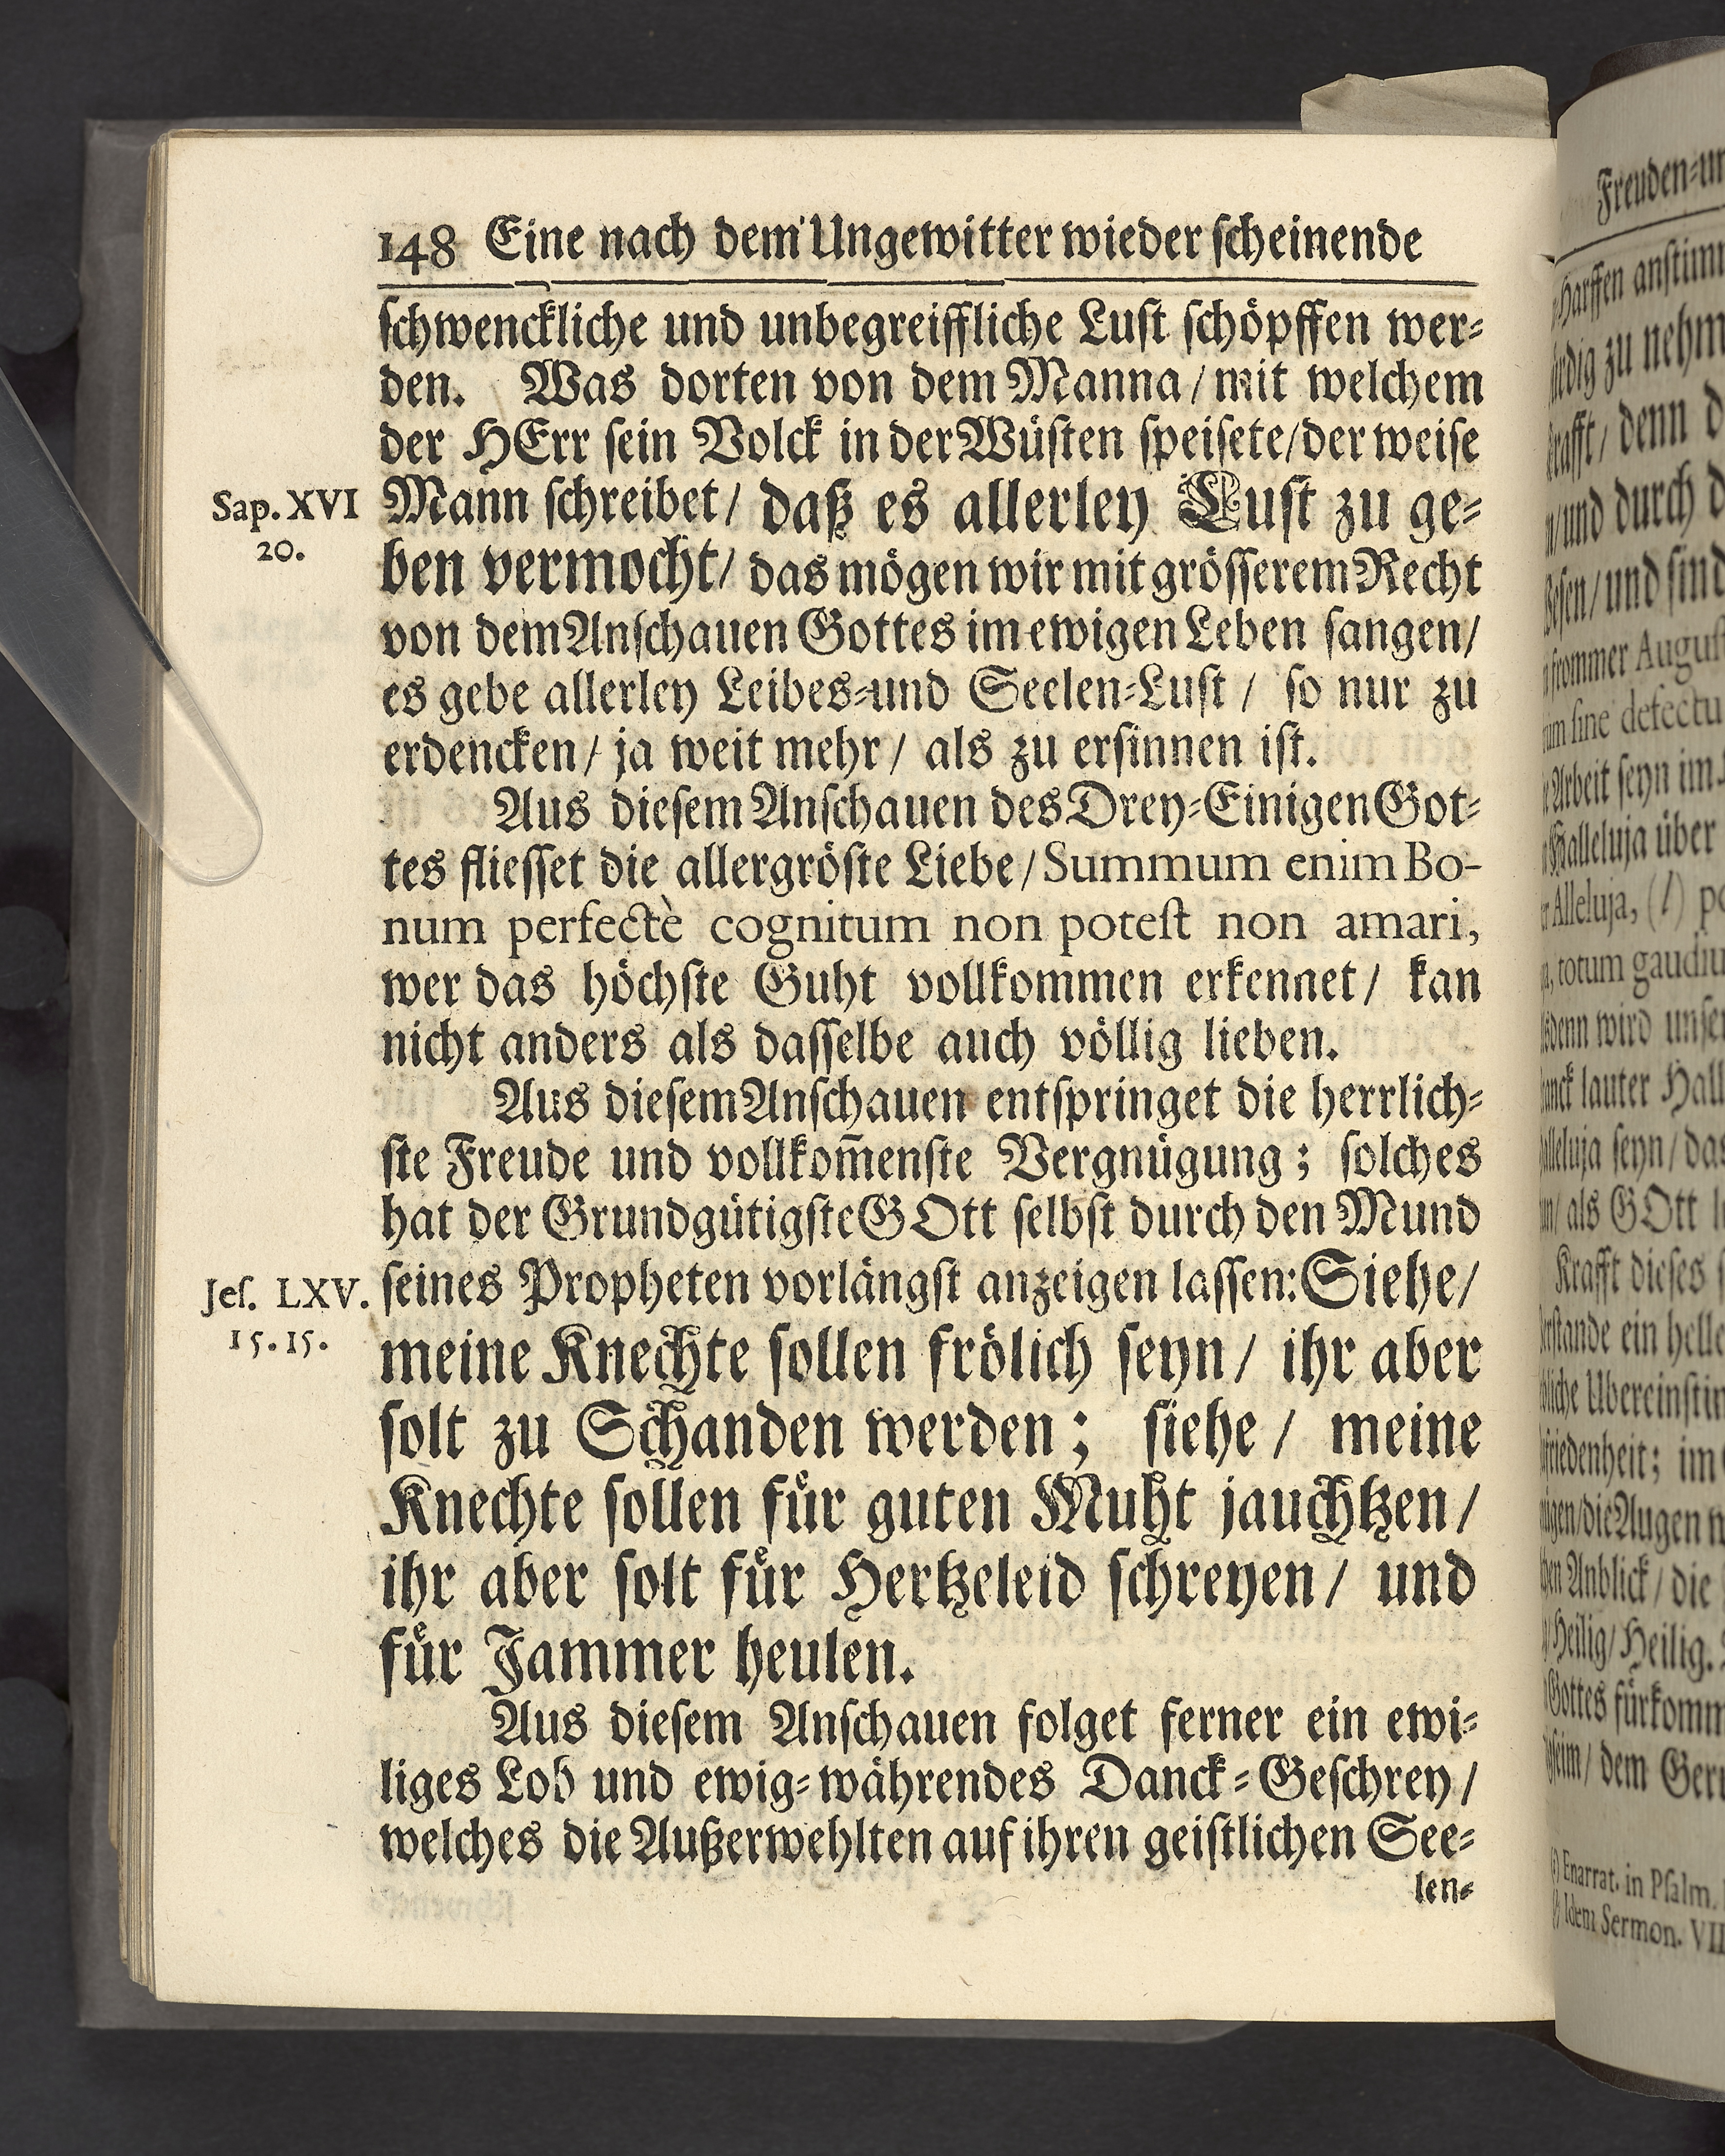 148 Eine nach dem Ungewitter wieder scheinende
schwenckliche und unbegreiffliche Lust schöpffen wer-
den. Was dorten von dem Manna / mit welchem
der HErr sein Volck in der Wüsten speisete/ der weise
Sap. XVI
20.
Mann schreibet/ daß es allerley Lust zu ge-
ben vermocht/ das mögen wir mit grösserem Recht
von dem Anschauen Gottes im ewigen Leben sangen/
es gebe allerley Leibes-und Seelen-Lust / so nur zu
erdencken/ ja weit mehr/ als zu ersinnen ist.
Aus diesem Anschauen des Drey-Einigen Got-
tes fliesset die allergröste Liebe/ Summum enim Bo-
num perfectè cognitum non potest non amari,
wer das höchste Guht vollkommen erkennet/ kan
nicht anders als dasselbe auch völlig lieben.
Aus diesem Anschauen entspringet die herrlich-
ste Freude und vollkom̃enste Vergnügung; solches
hat der Grundgütigste GOtt selbst durch den Mund
Jes. LXV.
15.15.
seines Propheten vorlängst anzeigen lassen: Siehe/
meine Knechte sollen frölich seyn/ ihr aber
solt zu Schanden werden; siehe / meine
Knechte sollen für guten Muht jauchtzen/
ihr aber solt für Hertzeleid schreyen/ und
für Jammer heulen.
Aus diesem Anschauen folget ferner ein ewi-
liges Lob und ewig-währendes Danck-Geschrey/
welches die Außerwehlten auf ihren geistlichen See-
len-
Freuden-un
Harffen anstimm
zu nehm
denn d
und durch d
und sind
frommer August
sine defectu
Arbeit seyn im
Halleluja über
Alleluja, (l) po
totum gaudiu
wird unser
lauter Hall
seyn/ das
als GOtt
Krafft dieses
ein helle
Ubereinstim
im
die Augen
Anblick/ die
Heilig/ Heilig.
Gottes fürkomm
dem Geru
Enarrat. in Psalm.
Idem Sermon. VII